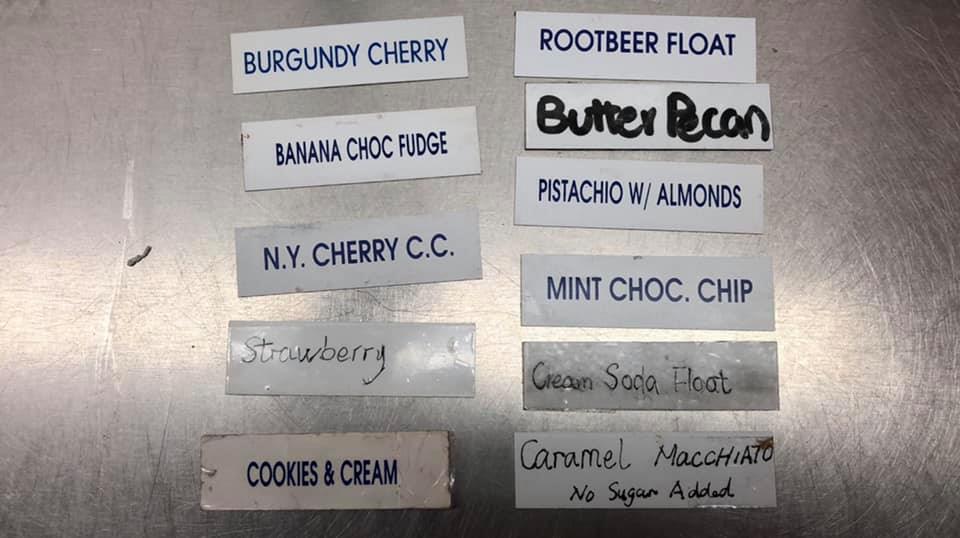 BURGUNDY CHERRY
BANANA CHOC FUDGE
N.Y. CHERRY C.C.
Strawberry
COOKIES & CREAM
ROOTBEER FLOAT
Butter Pecan
PISTACHIO W/ ALMONDS
MINT CHOC. CHIP
Cream Soda Float
Caramel MACCHIATO
No Sugar Added